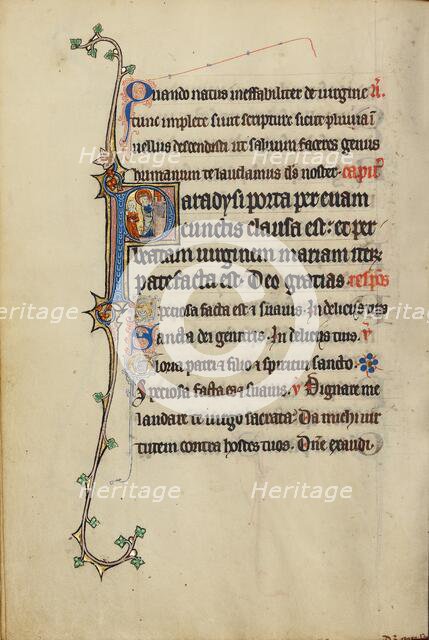 Quando natus ineffabiliter de uirgine R.
tunc implete sunt scripture sicut pluuia i
uellus descendisti ut saluum faceres genus
humanum te laudamus ds noster. capitl
Paradysi porta per euam
cunctis clausa est: et per
beatam uirginem mariam iter
patefacta est. Deo gratias. respons
Speciosa facta es et suauis. In deliciis
Sancta dei genetrix. In deliciis tuis. V
Gloria patri et filio et spiritui sancto.
Speciosa facta es et suauis. V Dignare me
laudare te uirgo sacrata. Da michi uir
tutem contra hostes tuos. Dne exaudi.
Heritage
Heritage
Heritage
Heritage
Heritage
Heritage
Heritage
Heritage